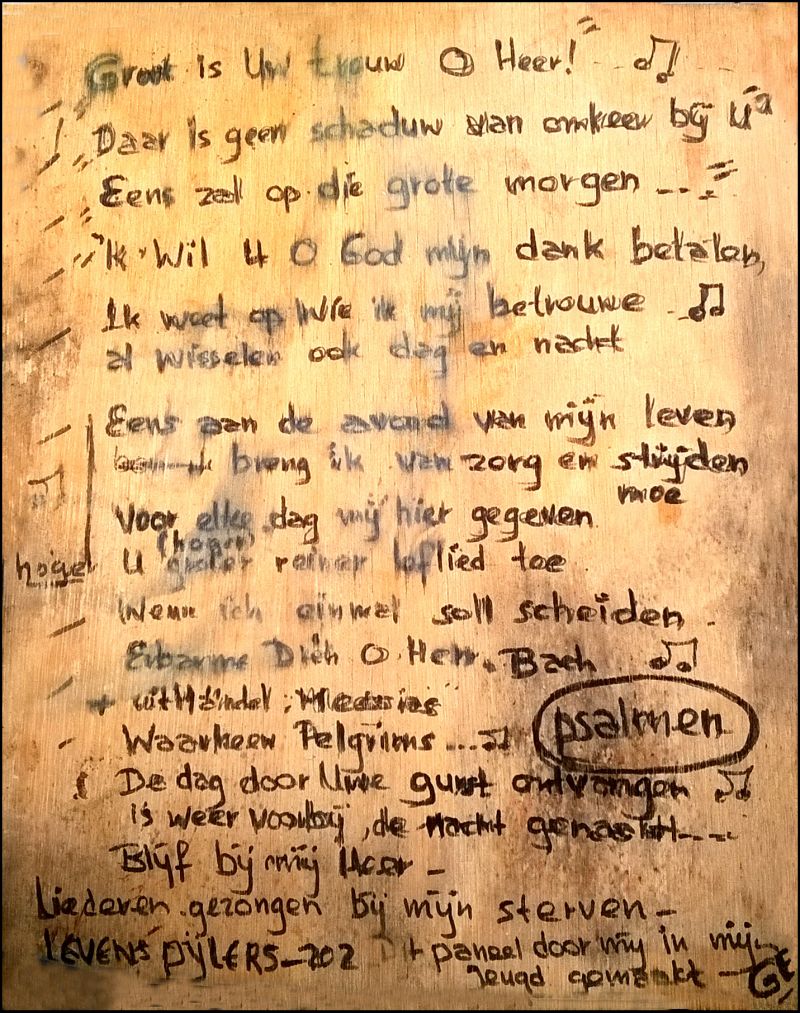 Groot is Uw trouw O Heer!
Daar is geen schaduw van omkeer bij U
Eens zal op die grote morgen ...
Ik Wil U O God mijn dank betalen,
Ik weet op Wie ik mij betrouwe
al wisselen ook dag en nacht
Eens aan de avond van mijn leven
breng ik van zorg en strijden
moe
Voor elke dag mij hier gegeven
(hoger)
hoger U groter reiner loflied toe
Wenn ich einmal soll scheiden.
Erbarme Dich O Herr. Bach
+ uit Händel, Messias
psalmen
Waarheen Pelgrims ...
De dag door Uwe gunst ontvangen
is weer voorbij, de nacht genaakt...
Blijf bij mij Heer -
Liederen gezongen bij mijn sterven -
LEVENS PIJLERS - 202 Dit paneel door mij in mijn
Jeugd gemaakt -
GE